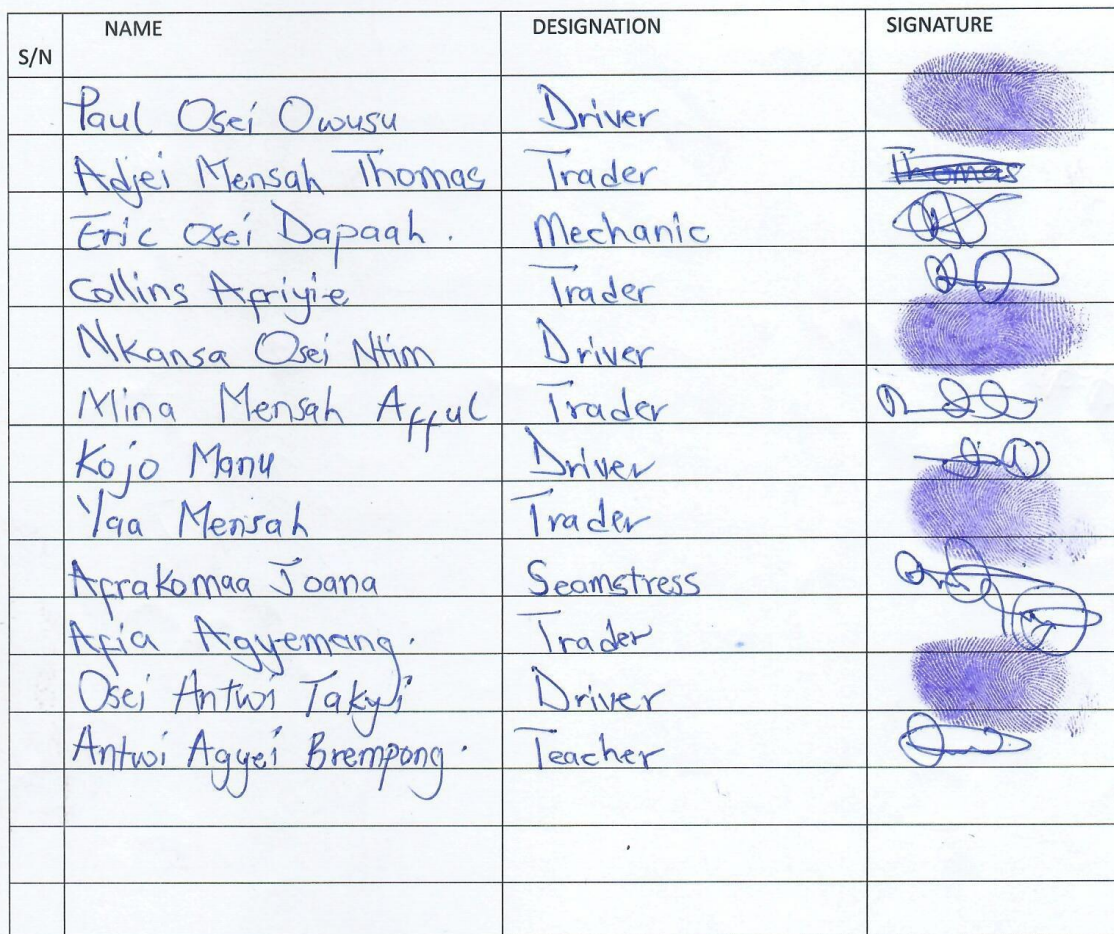 S/N NAME DESIGNATION SIGNATURE
Paul Osei Owusu Driver
Adjei Mensah Thomas Trader Thomas
Eric Osei Dapaah. Mechanic
Collins Afriyie Trader
Nkansa Osei Ntim Driver
Mina Mensah Afful Trader
Kojo Manu Driver
Yaa Mensah Trader
Afrakomaa Joana Seamstress
Afia Agyemang. Trader
Osei Antwi Takyi Driver
Antwi Agyei Brempong. Teacher